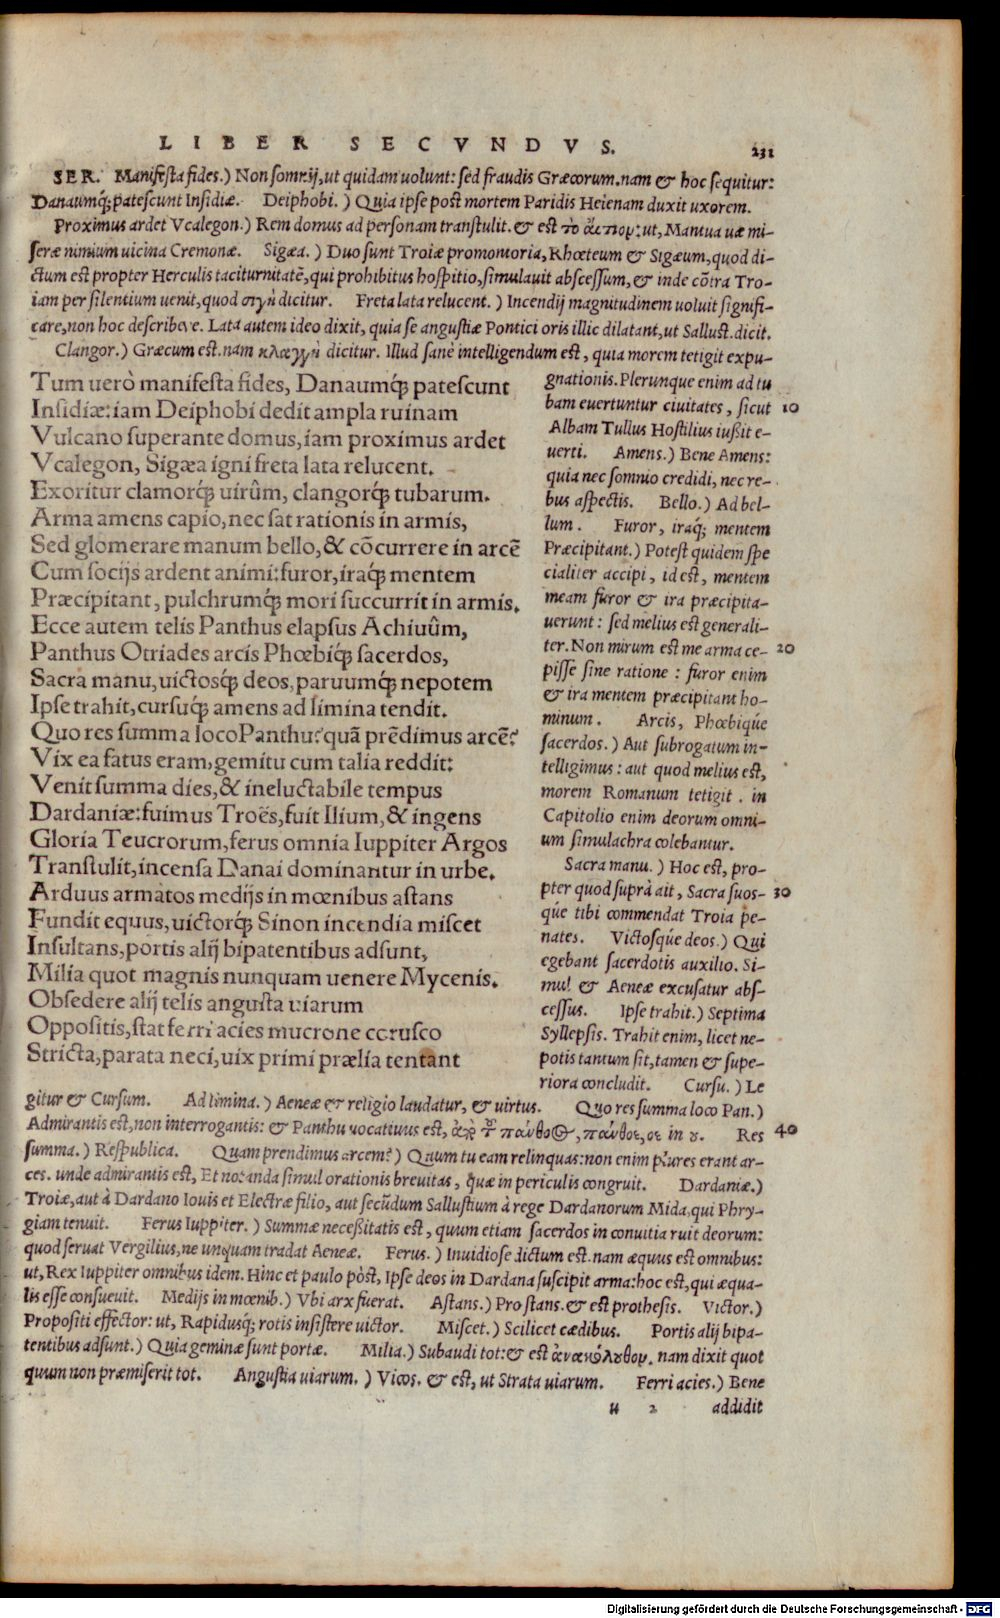 LIBER SECVNDVS. 231
SER. Manifesta fides.) Non somnij, ut quidam uolunt: sed fraudis Græcorum. nam & hoc sequitur:
Danaumq́; patescunt Insidiæ. Deiphobi.) Quia ipse post mortem Paridis Helenam duxit uxorem.
Proximus ardet Vcalegon.) Rem domus ad personam transtulit. & est τὸ ἄςπορ: ut, Mantua uæ mi-
seræ nimium uicina Cremonæ. Sigæa.) Duo sunt Troiæ promontoria, Rhœteum & Sigæum, quod di-
ctum est propter Herculis taciturnitatẽ, qui prohibitus hospitio, simulauit abscessum, & inde cõtra Tro-
iam per silentium uenit, quod σιγὴ dicitur. Freta lata relucent.) Incendij magnitudinem uoluit signifi-
care, non hoc describere. Lata autem ideo dixit, quia se angustiæ Pontici oris illic dilatant, ut Sallust. dicit.
Clangor.) Græcum est. nam κλαγγὴ dicitur. Illud sanè intelligendum est, quia morem tetigit expu-
Tum uerò manifesta fides, Danaumq́; patescunt
Insidiæ: iam Deiphobi dedit ampla ruinam
Vulcano superante domus, iam proximus ardet
Vcalegon, Sigæa igni freta lata relucent.
Exoritur clamorq́; uirûm, clangorq́; tubarum.
Arma amens capio, nec sat rationis in armis,
Sed glomerare manum bello, & cõcurrere in arcẽ
Cum socijs ardent animi: furor, iraq́; mentem
Præcipitant, pulchrumq́; mori succurrit in armis.
Ecce autem telis Panthus elapsus Achiuûm,
Panthus Otriades arcis Phœbiq́; sacerdos,
Sacra manu, uictosq́; deos, paruumq́; nepotem
Ipse trahit, cursuq́; amens ad limina tendit.
Quo res summa loco Panthu? quã prẽdimus arcẽ?
Vix ea fatus eram, gemitu cum talia reddit:
Venit summa dies, & ineluctabile tempus
Dardaniæ: fuimus Troës, fuit Ilium, & ingens
Gloria Teucrorum, ferus omnia Iuppiter Argos
Transtulit, incensa Danai dominantur in urbe.
Arduus armatos medijs in mœnibus astans
Fundit equus, uictorq́; Sinon incendia miscet
Insultans, portis alij bipatentibus adsunt,
Milia quot magnis nunquam uenere Mycenis.
Obsedere alij telis angusta uiarum
Oppositis, stat ferri acies mucrone corusco
Stricta, parata neci, uix primi prælia tentant
gnationis. Plerunque enim ad tu
bam euertuntur ciuitates, sicut 10
Albam Tullus Hostilius iußit e-
uerti. Amens.) Bene Amens:
quia nec somnio credidi, nec re-
bus aspectis. Bello.) Ad bel-
lum. Furor, iraq́; mentem
Præcipitant.) Potest quidem spe
cialiter accipi, id est, mentem
meam furor & ira præcipita-
uerunt: sed melius est generali-
ter. Non mirum est me arma ce- 20
pisse sine ratione: furor enim
& ira mentem præcipitant ho-
minum. Arcis, Phœbiq́ue
sacerdos.) Aut subrogatum in-
telligimus: aut quod melius est,
morem Romanum tetigit. in
Capitolio enim deorum omni-
um simulachra colebantur.
Sacra manu.) Hoc est, pro-
pter quod suprà ait, Sacra suos- 30
q́ue tibi commendat Troia pe-
nates. Victosq́ue deos.) Qui
egebant sacerdotis auxilio. Si-
mul & Aeneæ excusatur abs-
cessus. Ipse trahit.) Septima
Syllepsis. Trahit enim, licet ne-
potis tantum sit, tamen & supe-
riora concludit. Cursu.) Le
gitur & Cursum. Ad limina.) Aeneæ & religio laudatur, & uirtus. Quo res summa loco Pan.)
Admirantis est, non interrogantis: & Panthu uocatiuus est, πάνθοος, πάνθους, ος in ȣ. Res 40
summa.) Respublica. Quam prendimus arcem?) Quum tu eam relinquas: non enim plures erant ar-
ces. unde admirantis est, Et notanda simul orationis breuitas, quæ in periculis congruit. Dardaniæ.)
Troiæ, aut à Dardano Iouis et Electræ filio, aut secũdum Sallustium à rege Dardanorum Mida, qui Phry-
giam tenuit. Ferus Iuppiter.) Summæ neceßitatis est, quum etiam sacerdos in conuitia ruit deorum:
quod seruat Vergilius, ne unquam tradat Aeneæ. Ferus.) Inuidiose dictum est. nam æquus est omnibus:
ut, Rex Iuppiter omnibus idem. Hinc et paulo pòst, Ipse deos in Dardana suscipit arma: hoc est, qui æqua-
lis esse consueuit. Medijs in mœnib.) Vbi arx fuerat. Astans.) Pro stans. & est prothesis. Victor.)
Propositi effector: ut, Rapidusq́; rotis insistere uictor. Miscet.) Scilicet cædibus. Portis alij bipa-
tentibus adsunt.) Quia geminæ sunt portæ. Milia.) Subaudi tot: & est ἀνακόλυθορ. nam dixit quot
quum non præmiserit tot. Angustia uiarum.) Vicos. & est, ut Strata uiarum. Ferri acies.) Bene
u 2 addidit
Digitalisierung gefördert durch die Deutsche Forschungsgemeinschaft - DFG